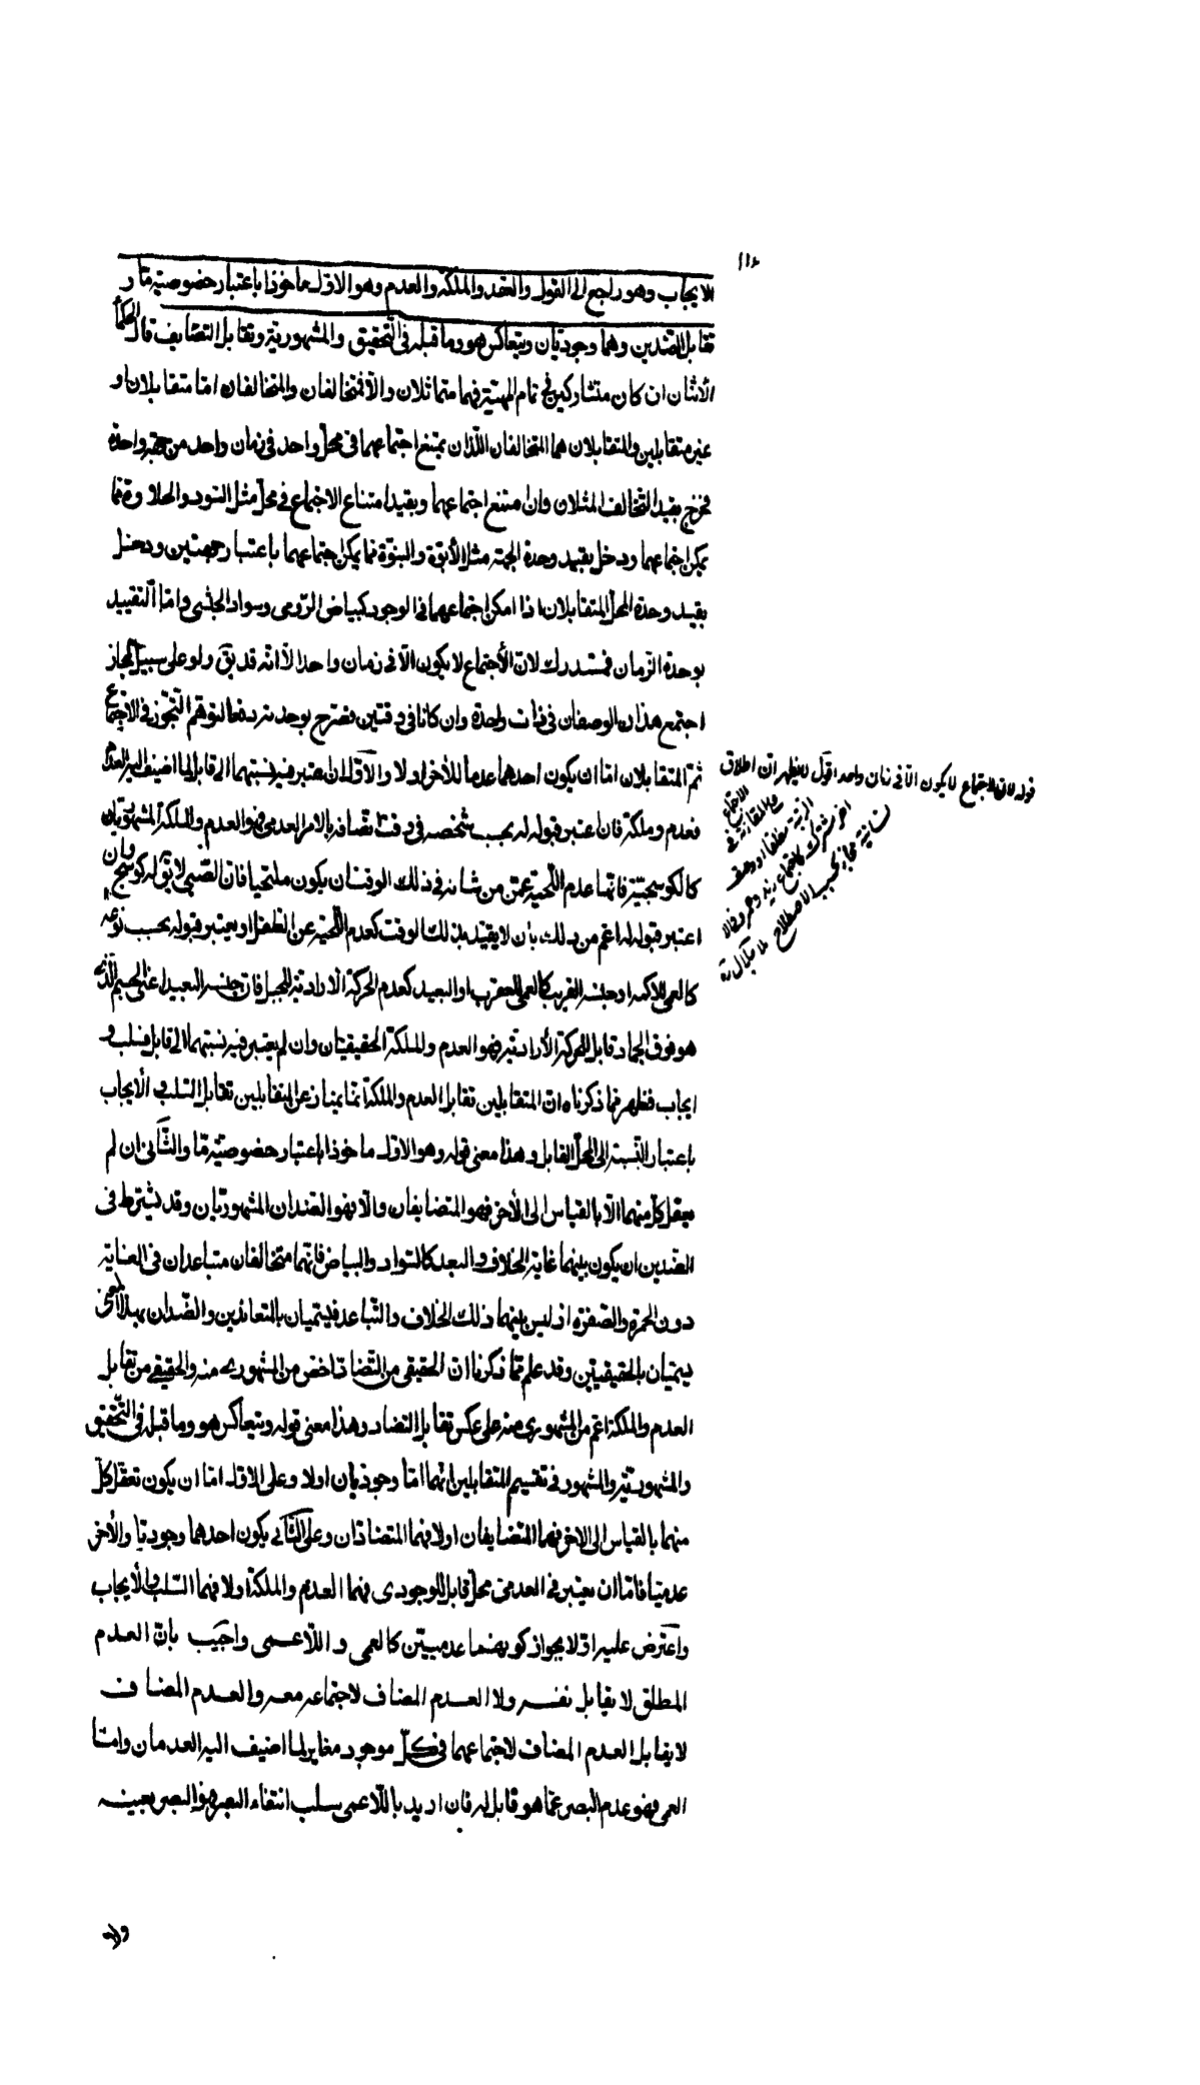 الايجاب وهو راجع الى القول والعقد والملكة والعدم وهو الاول ماخوذا باعتبار خصوصية ما و
تقابل الضدين وهما وجوديان ويتعاكس هو وما قبله في التحقيق والمشهورية وتقابل التضايف قال الحكماء
الاثنان ان كان متشاركين في تمام المهية فهما متماثلان والا فمتخالفان والمتخالفان اما متقابلان او
غير متقابلين والمتقابلان هما المتخالفان اللذان يمتنع اجتماعهما في محل واحد في زمان واحد من جهة واحدة
فخرج بقيد التخالف المثلان وان امتنع اجتماعهما وبقيد امتناع الاجتماع في محل مثل السواد والحلاوة مما
يمكن اجتماعهما ودخل بقيد وحدة الجهة مثل الأبوة والبنوة مما يمكن اجتماعهما باعتبار جهتين ودخل
بقيد وحدة المحل المتقابلان اذا امكن اجتماعهما في الوجود كبياض الرومى وسواد الحبشى واما التقييد
بوحدة الزمان فمستدرك لان الأجتماع لا يكون الا فى زمان واحد الا انه قد يق ولو على سبيل المجاز
اجتمع هذان الوصفان في ذات واحدة وان كانا في وقتين فصرح بوحدته دفعا لتوهم التجوز في الاجتماع
ثم المتقابلان اما ان يكون احدهما عدما للأخر او لا والاول ان اعتبر فيه نسبتهما الى قابل لما اضيف اليه العدم
فعدم وملكة فان اعتبر قبوله له بحسب شخصه في وقت اتصافه بالامر العدمي فهو العدم والملكة المشهوريان
كالكوسجية فانها عدم اللحية عمن من شانه في ذلك الوقت ان يكون ملتحيا فان الصبى لا يق له كوسج وان
اعتبر قبوله له اعم من ذلك بان لا يقيد بذلك الوقت كعدم اللحية عن الطفل او يعتبر قبوله بحسب نوعه
كالعمى للاكمه او جنسه القريب كالعمى للعقرب او البعيد كعدم الحركة الارادية للجبل فان جنسه البعيد اعنى الجسم الذى
هو فوق الجماد قابل للحركة الأرادية فهو العدم والملكة الحقيقيان وان لم يعتبر فيه نسبتهما الى قابل فسلب و
ايجاب فظهر مما ذكرناه ان المتقابلين تقابل العدم والملكة انما يمتاز عن المتقابلين تقابل السلب والأيجاب
باعتبار النسبة الى المحل القابل وهذا معنى قوله وهو الاول ماخوذا باعتبار خصوصية ما والثانى ان لم
يعقل كل منهما الا بالقياس الى الأخر فهو المتضايفان والا فهو الضدان المشهوريان وقد يشترط فى
الضدين ان يكون بينهما غاية الخلاف والبعد كالسواد والبياض فانهما متخالفان متباعدان فى الغاية
دون الحمرة والصفرة اذ ليس بينهما ذلك الخلاف والتباعد فيسميان بالمتعاندين والضدان بهذا المعنى
يسميان بالحقيقيين وقد علم مما ذكرنا ان الحقيقى من التضاد اخص من المشهورى منه والحقيقي من تقابل
العدم والملكة اعم من المشهورى منه على عكس تقابل التضاد وهذا معنى قوله ويتعاكس هو وما قبله في التحقيق
والمشهورية والمشهور في تقسيم المتقابلين انهما اما وجوديان اولا وعلى الاول اما ان يكون تعقل كل
منهما بالقياس الى الاخر فهما المتضايفان اولا فهما المتضادان وعلى الثاني يكون احدهما وجوديا والأخر
عدميا فاما ان يعتبر في العدمى محل قابل للوجودى فهما العدم والملكة اولا فهما السلب والأيجاب
واعترض عليه اولا بجواز كونهما عدميين كالعمى واللاعمى واجيب بان العدم
المطلق لا يقابل نفسه ولا العدم المضاف لاجتماعه معه والعدم المضاف
لا يقابل العدم المضاف لاجتماعهما في كل موجود مغاير لما اضيف اليه العدمان واما
العمى فهو عدم البصر عما هو قابل له فان اريد باللاعمى سلب انتفاء البصر فهو البصر بعينه
قوله لان الاجتماع لا يكون الا فى زمان واحد اقول ليظهر ان اطلاق
الاجتماع